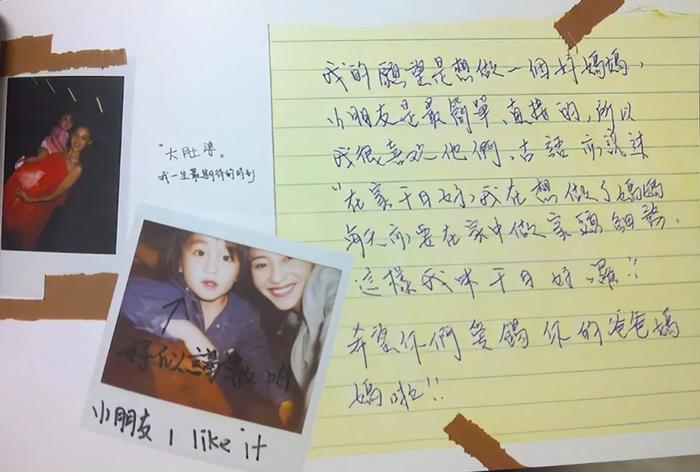 "大肚婆。
我一生最期待的時刻
好似謙謙喲
小朋友 I like it
我的願望是想做一個好媽媽,
小朋友是最簡單、直接的,所以
我很喜欢他們、古語亦說過
"在家千日好,我在想做了媽媽
每天亦要在家中做家頭細務、
這樣我咪千日好囉!!
希望你們 錫你的爸爸媽
媽啦!!